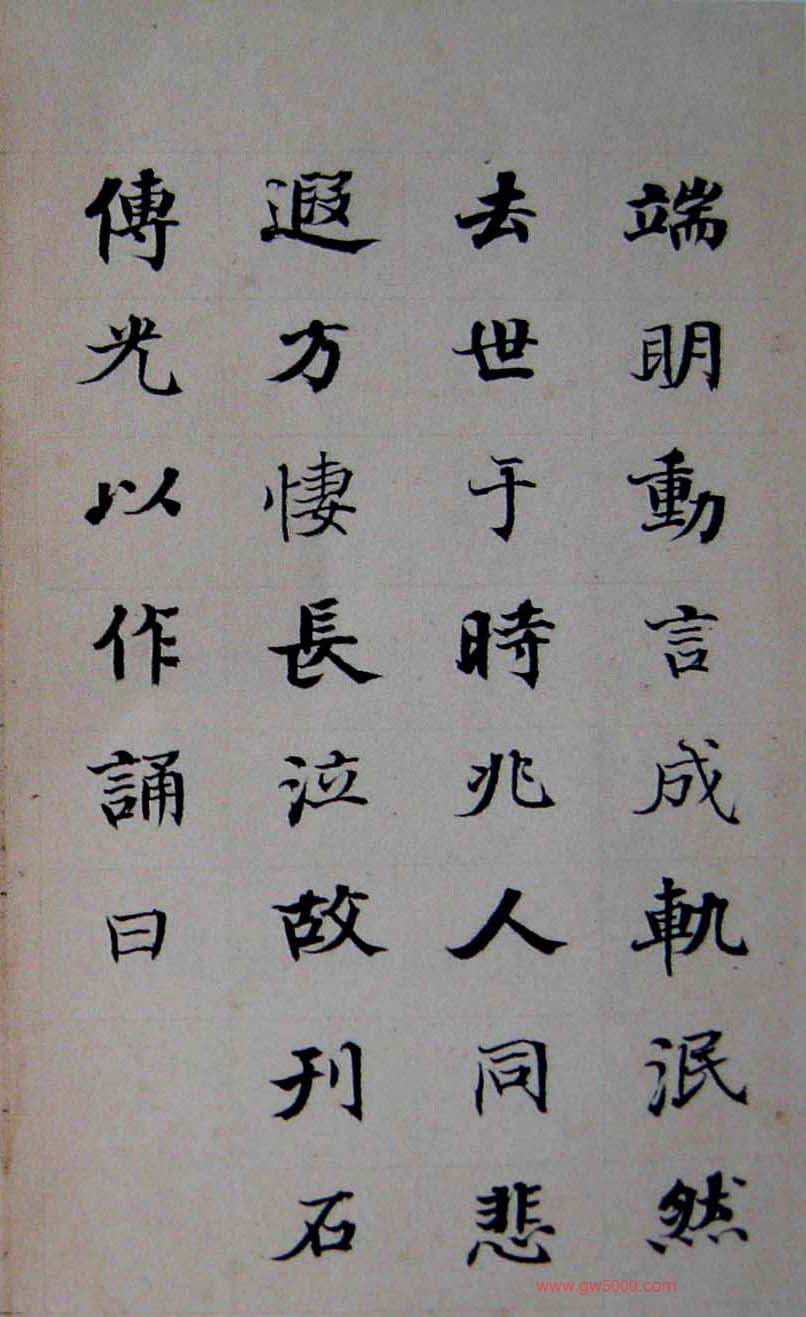 端明動言成軌泯然
去世于時兆人同悲
遐方悽長泣故刊石
傳光以作誦曰
www.gw5000.com